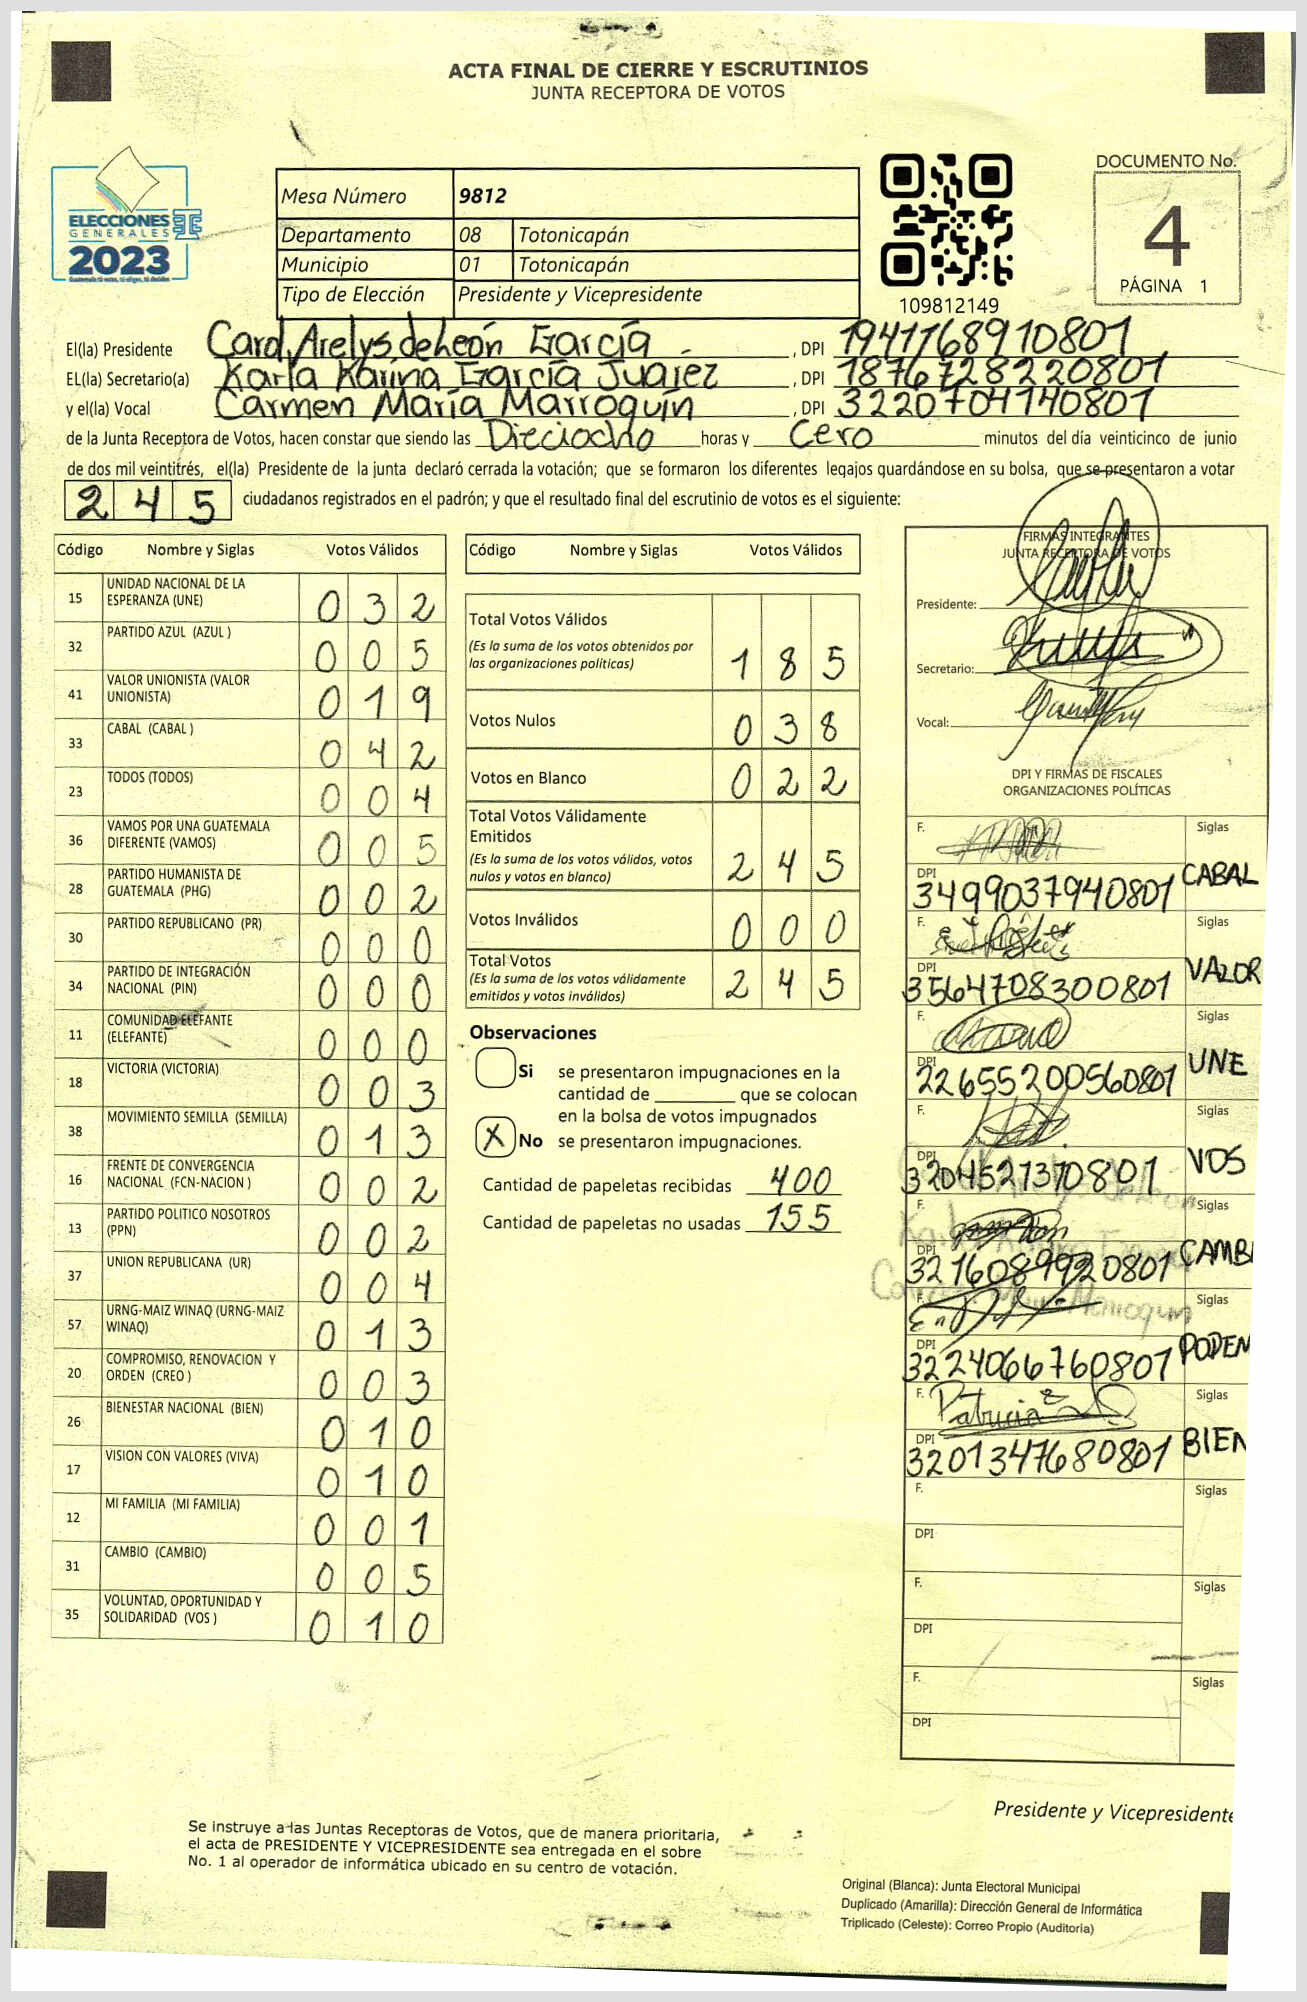 ACTA FINAL DE CIERRE Y ESCRUTINIOS
JUNTA RECEPTORA DE VOTOS
ELECCIONES
GENERALES
2023
Mesa Número 9812
Departamento 08 Totonicapán
Municipio 01 Totonicapán
Tipo de Elección Presidente y Vicepresidente
109812149
DOCUMENTO No.
4
PÁGINA 1
El(la) Presidente Carol Arelys de León García, DPI 1941168910801
EL(la) Secretario(a) Karla Karina García Juarez, DPI 1876728220801
y el(la) Vocal Carmen María Marroquín, DPI 3220704140801
de la Junta Receptora de Votos, hacen constar que siendo las Dieciocho horas y Cero minutos del día veinticinco de junio
de dos mil veintitrés, el(la) Presidente de la junta declaró cerrada la votación; que se formaron los diferentes legajos guardándose en su bolsa, que se presentaron a votar
245 ciudadanos registrados en el padrón; y que el resultado final del escrutinio de votos es el siguiente:
Código Nombre y Siglas Votos Válidos
15 UNIDAD NACIONAL DE LA
ESPERANZA (UNE) 032
32 PARTIDO AZUL (AZUL ) 005
41 VALOR UNIONISTA (VALOR
UNIONISTA) 019
33 CABAL (CABAL ) 042
23 TODOS (TODOS) 004
36 VAMOS POR UNA GUATEMALA
DIFERENTE (VAMOS) 005
28 PARTIDO HUMANISTA DE
GUATEMALA (PHG) 002
30 PARTIDO REPUBLICANO (PR) 000
34 PARTIDO DE INTEGRACIÓN
NACIONAL (PIN) 000
11 COMUNIDAD ELEFANTE
(ELEFANTE) 000
18 VICTORIA (VICTORIA) 003
38 MOVIMIENTO SEMILLA (SEMILLA) 013
16 FRENTE DE CONVERGENCIA
NACIONAL (FCN-NACION ) 002
13 PARTIDO POLITICO NOSOTROS
(PPN) 002
37 UNION REPUBLICANA (UR) 004
57 URNG-MAIZ WINAQ (URNG-MAIZ
WINAQ) 013
20 COMPROMISO, RENOVACION Y
ORDEN (CREO ) 003
26 BIENESTAR NACIONAL (BIEN) 010
17 VISION CON VALORES (VIVA) 010
12 MI FAMILIA (MI FAMILIA) 001
31 CAMBIO (CAMBIO) 005
35 VOLUNTAD, OPORTUNIDAD Y
SOLIDARIDAD (VOS ) 010
Código Nombre y Siglas Votos Válidos
Total Votos Válidos
(Es la suma de los votos obtenidos por
las organizaciones políticas) 185
Votos Nulos 038
Votos en Blanco 022
Total Votos Válidamente
Emitidos
(Es la suma de los votos válidos, votos
nulos y votos en blanco) 245
Votos Inválidos 000
Total Votos
(Es la suma de los votos válidamente
emitidos y votos inválidos) 245
Observaciones
Si se presentaron impugnaciones en la
cantidad de ________ que se colocan
en la bolsa de votos impugnados
X No se presentaron impugnaciones.
Cantidad de papeletas recibidas 400
Cantidad de papeletas no usadas 155
FIRMAS INTEGRANTES
JUNTA RECEPTORA DE VOTOS
Presidente:
Secretario:
Vocal:
DPI Y FIRMAS DE FISCALES
ORGANIZACIONES POLÍTICAS
F. Siglas
DPI 3499037940801 CABAL
F. Siglas
DPI 3564708300801 VALOR
F. Siglas
DPI 22655200560801 UNE
F. Siglas
DPI 3204521370801 VOS
F. Siglas
DPI 3216089920801 CAMBI
F. Siglas
DPI 3224066760801 PODEM
F. Patricia Siglas
DPI 3201347680801 BIEN
F. Siglas
DPI
F. Siglas
DPI
F. Siglas
DPI
Presidente y Vicepresidente
Se instruye a las Juntas Receptoras de Votos, que de manera prioritaria,
el acta de PRESIDENTE Y VICEPRESIDENTE sea entregada en el sobre
No. 1 al operador de informática ubicado en su centro de votación.
Original (Blanca): Junta Electoral Municipal
Duplicado (Amarilla): Dirección General de Informática
Triplicado (Celeste): Correo Propio (Auditoria)